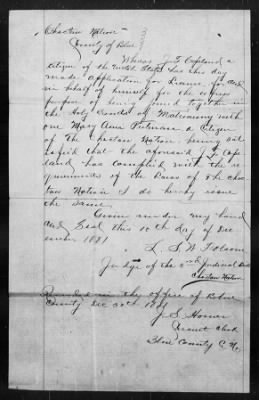 Choctaw Nation
County of Blue
Whereas J. T. Copeland a
citizen of the United States has this day
made application for License for and
in behalf of himself for the express
purpose of being joined together in
the Holy bonds of Matrimony with
one Mary Ann Pitman a Citizen
of the Choctaw Nation. being sat
isfied that the aforesaid Cope
land has complied with the re
quirements of the Laws of the Choc
taw Nation I do hereby issue
the same.
Given under my hand
and Seal this 10th day of Dec
ember 1881
L. S. W. Folsom
Judge of the Judicial Dist
Choctaw Nation
Recorded in the office of Blue
County Dec 30th 1881
J. S. Horner
Clerk
Blue County C. N.